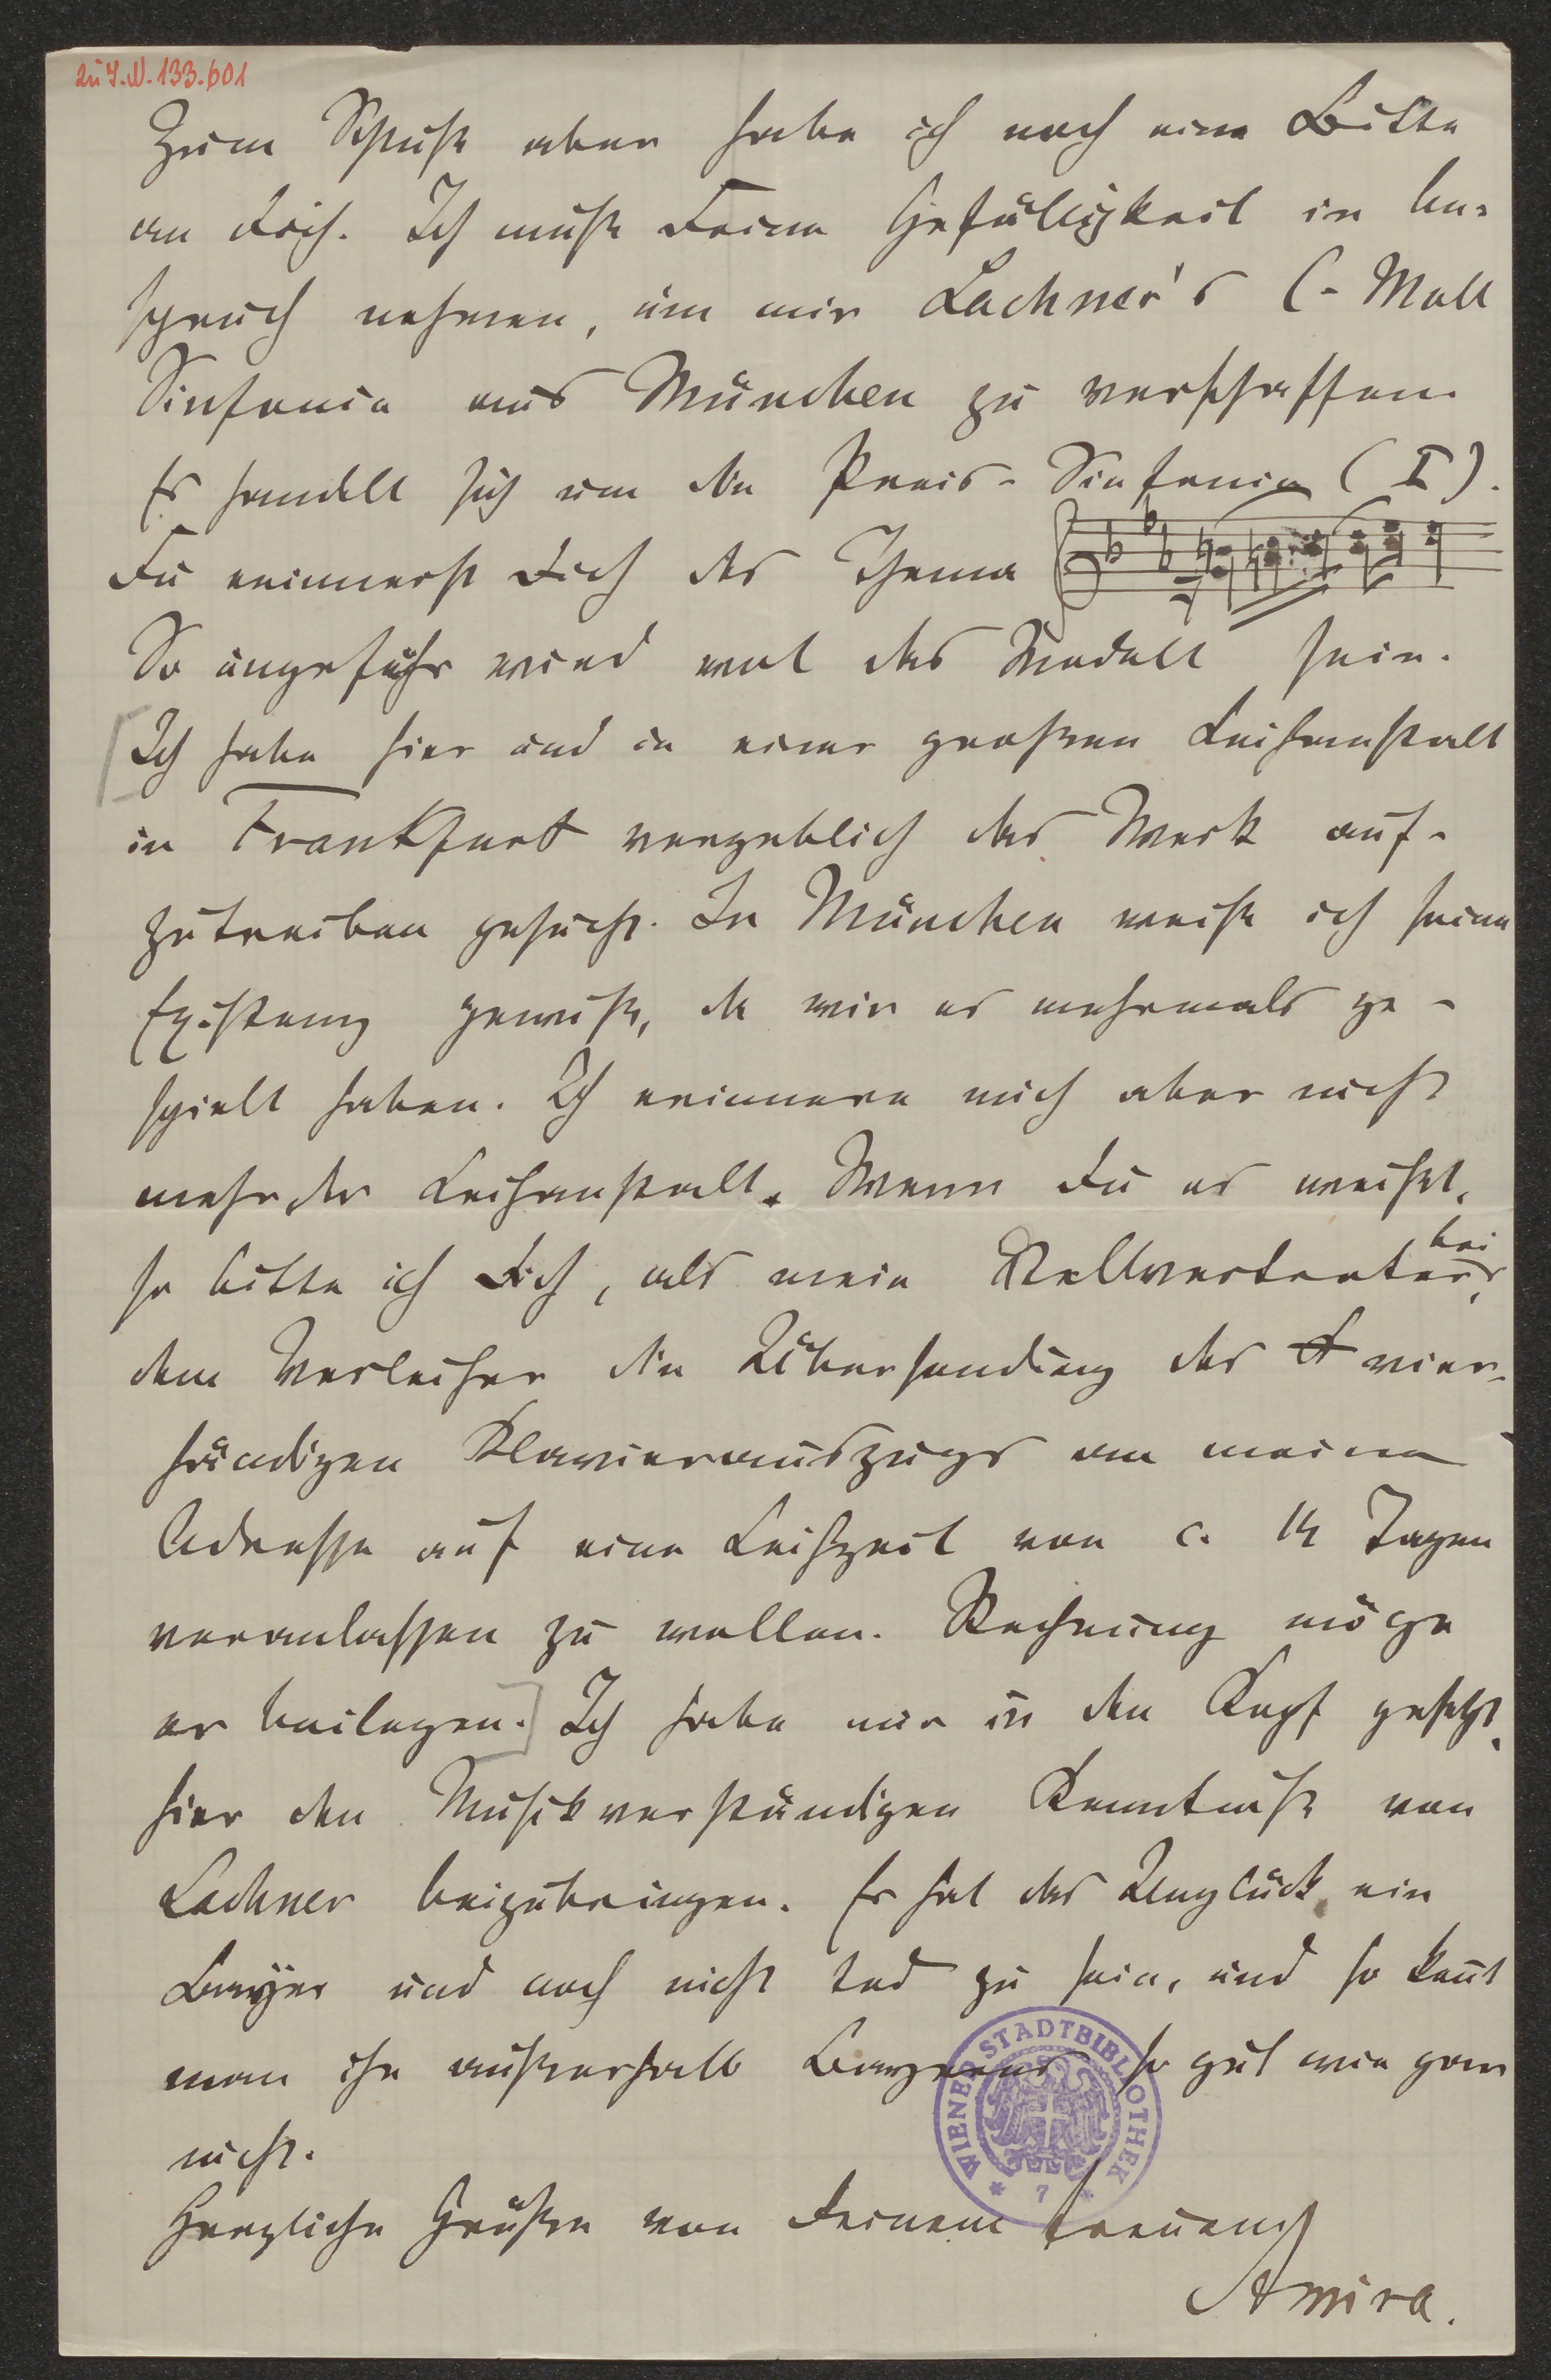 zu I.N. 133.601
Zum Schluß aber habe ich noch eine Bitte
an Dich. Ich muß Deine Gefälligkeit in An-
spruch nehmen, um mir Lachner's C-Moll
Sinfonie aus München zu verschaffen.
Es handelt sich um die Preis-Sinfonie (I).
Du erinnerst Dich des Thema
So ungefähr wird wol das Modell sein.
[Ich habe hier und in einer großen Leihanstalt
in Frankfurt vergeblich das Werk auf-
zutreiben gesucht. In München weiß ich seine
Existenz gewiß, da wir es mehrmals ge-
spielt haben. Ich erinnere mich aber nicht
mehr der Leihanstalt. Wenn Du es weißt,
so bitte ich Dich, als mein Stellvertreter bei
dem Verleiher die Übersendung des vier-
händigen Klavierauszugs an meine
Adresse auf eine Leihzeit von c. 14 Tagen
veranlassen zu wollen. Rechnung möge
er beilegen.] Ich habe mir in den Kopf gesetzt,
hier den Musikverständigen Kenntniß von
Lachner beizubringen. Er hat das Unglück, ein
Bayer und noch nicht tod zu sein, und so kennt
man ihn außerhalb Bayerns so gut wie gar
nicht.
Herzliche Grüße von Deinem treuen
Amira.
WIENER STADTBIBLIOTHEK
* 7 *